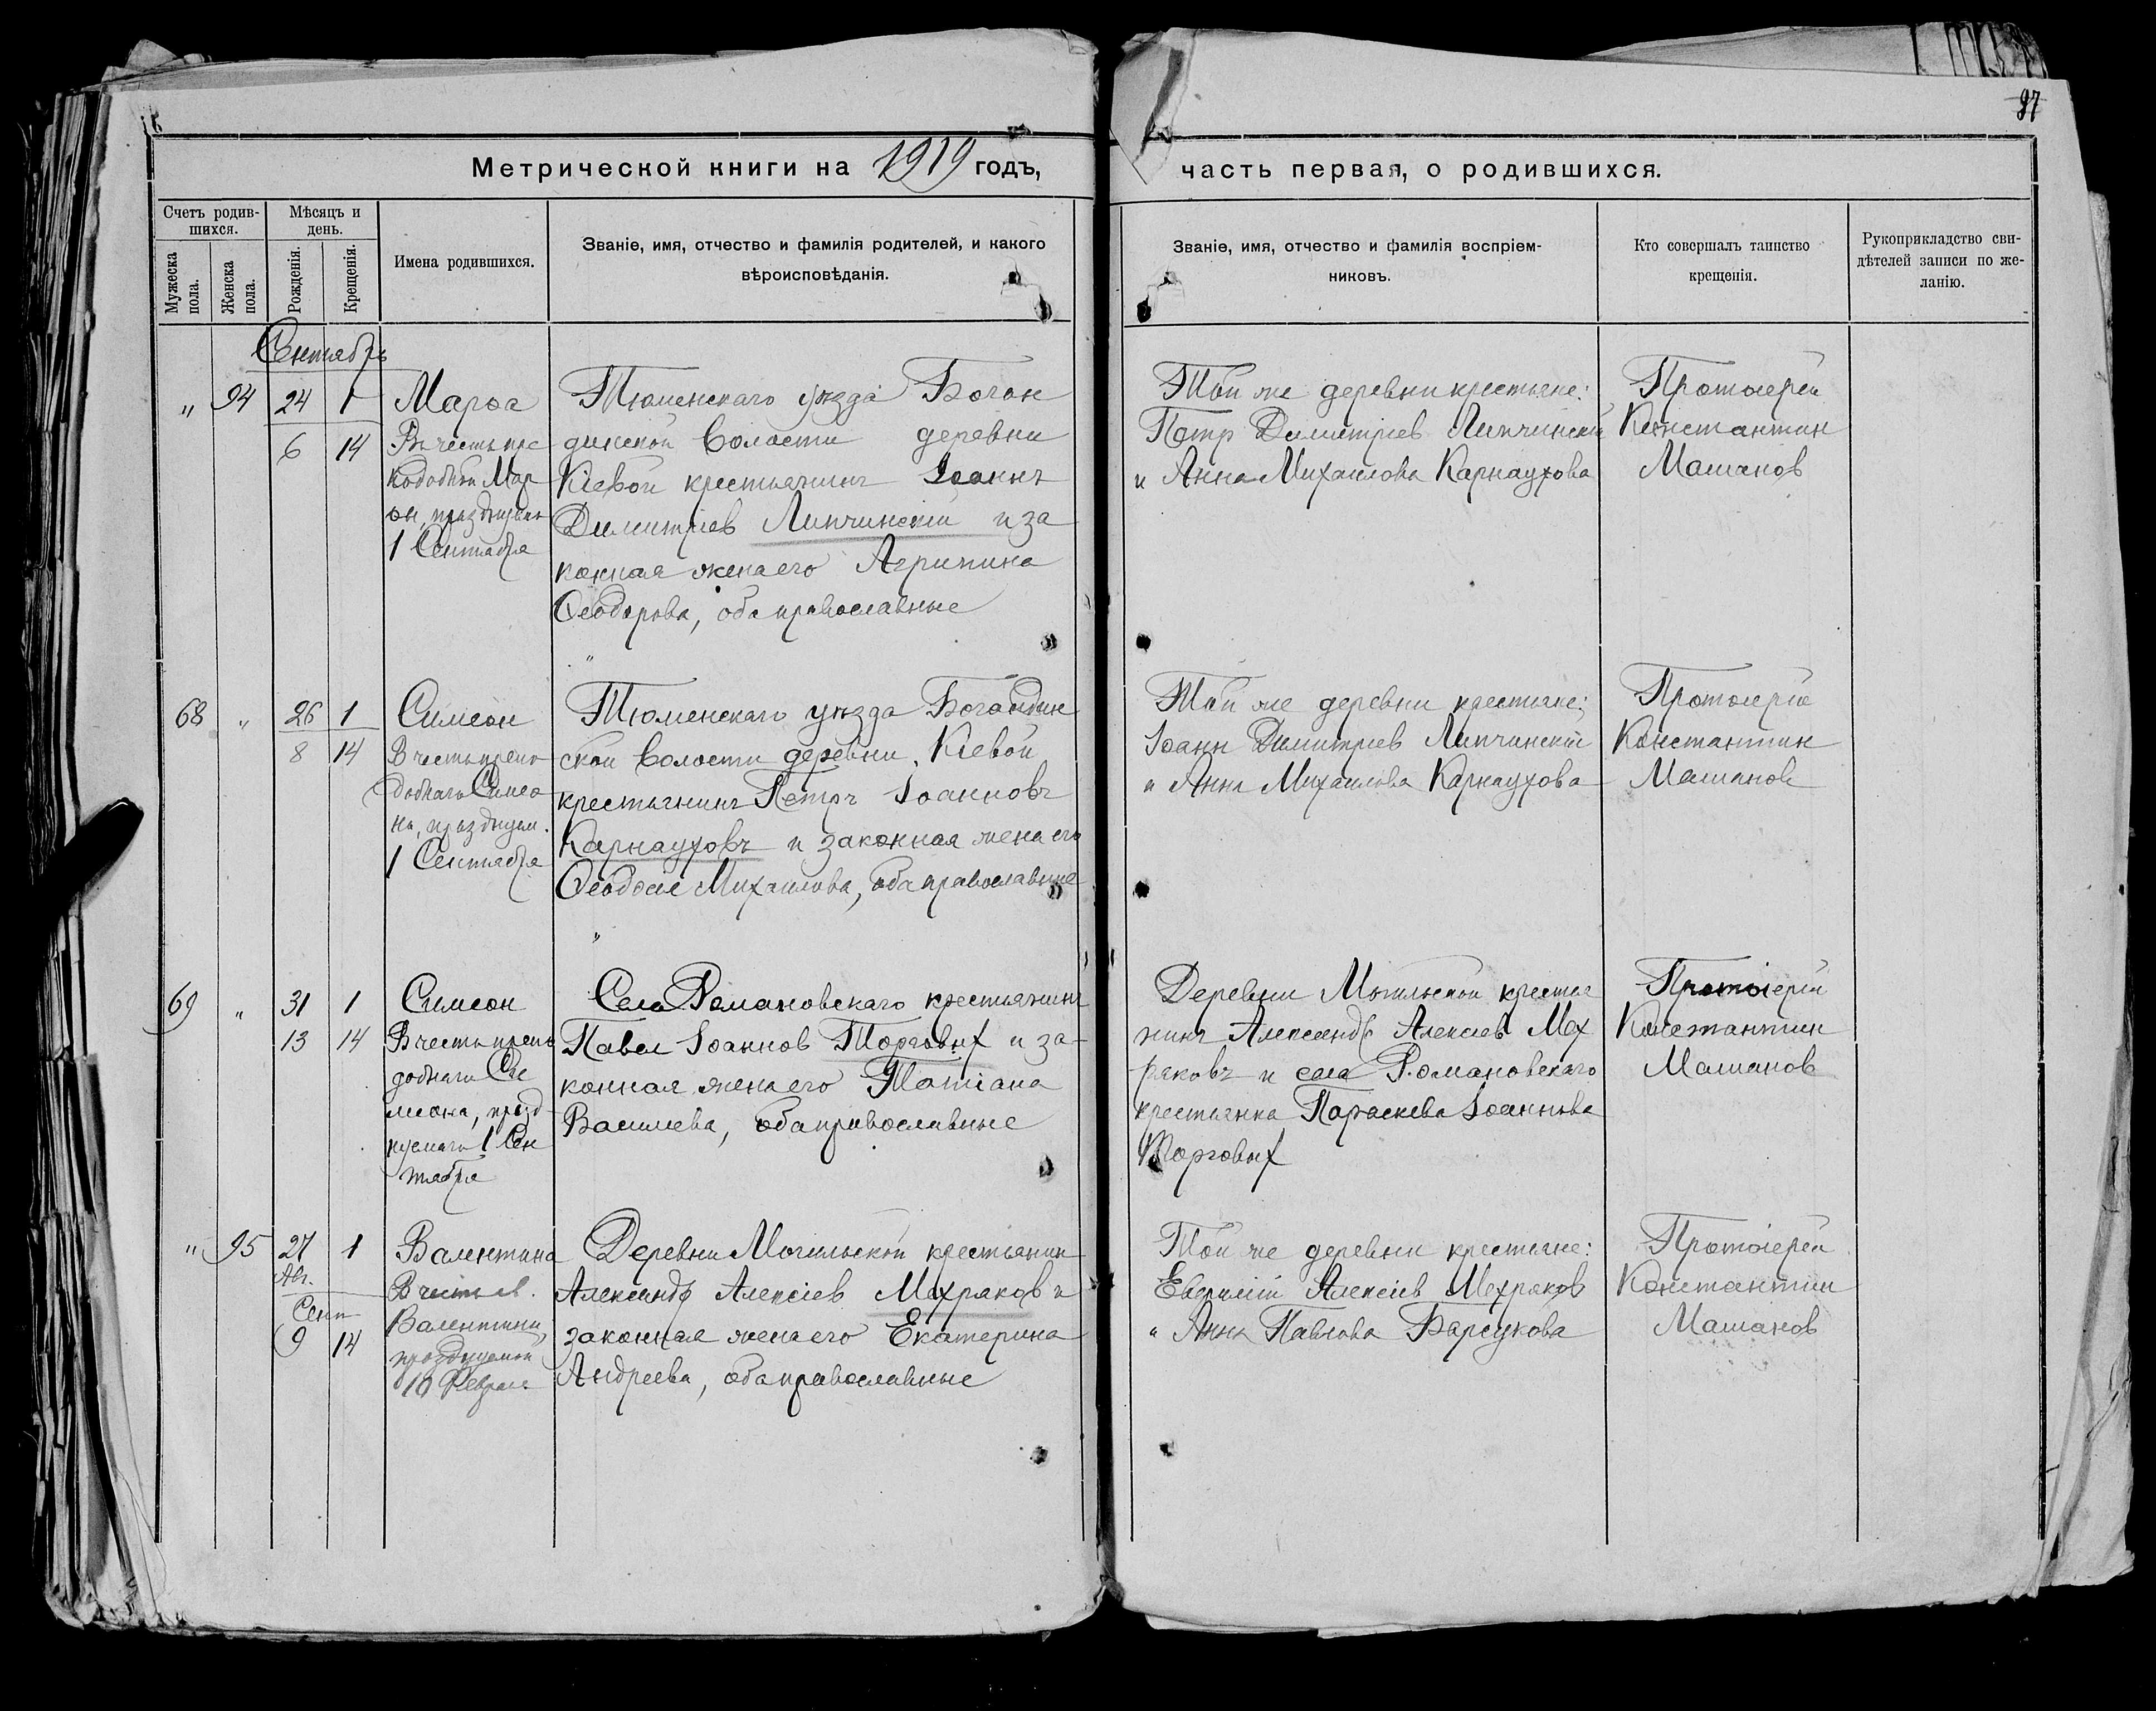 87
Метрической книги на 1919 годъ,
часть первая, о родившихся.
Счетъ родив-
шихся.
Мужеска
пола.
Женска
пола.
Мѣсяцъ и
день.
Рожденія.
Крещенія.
Имена родившихся.
Званіе, имя, отчество и фамилія родителей, и какого
вѣроисповѣданія.
Званіе, имя, отчество и фамилія воспріем-
никовъ.
Кто совершалъ таинство
крещенія.
Рукоприкладство сви-
дѣтелей записи по же-
ланію.
Сентябрь
" 94 24 1
6 14
Марѳа
Въ честь пре
подобной Мар
ѳы, празднуем
1 Сентября
Тюменскаго уѣзда Боган
динской волости деревни
Кіевой крестьянинъ Іоаннъ
Димитріев Липчинскій и за
конная жена его Агрипина
Ѳеодорова, оба православные
Той же деревни крестьяне:
Петр Димитріев Липчинскій
и Анна Михаилова Карнаухова
Протоіерей
Константин
Машанов
68 " 26 1
8 14
Симеон
В честь препо
добнаго Симео
на, празднуем.
1 Сентября
Тюменскаго уѣзда Богандин
ской волости деревни Кіевой
крестьянинъ Петръ Іоанновъ
Карнауховъ и законная жена его
Ѳеодосія Михаилова, оба православные
Той же деревни крестьяне;
Іоанн Димитріев Липчинскій
и Анна Михаилова Карнаухова
Протоіерей
Константин
Машанов
69 " 31 1
13 14
Симеон
В честь препо
добнаго Си
меона, празд
нуемаго 1 Сен
тября
Села Романовскаго крестьянинъ
Павел Іоаннов Торговых и за-
конная жена его Татіана
Васильева, оба православные
Деревни Могильской крестья
нинъ Александр Алексіев Мех
ряковъ и села Романовскаго
крестьянка Параскева Іоаннова
Торговых
Протоіерей
Константин
Машанов
" 95 27 1
Авг.
Сент
9 14
Валентина
В честь св.
Валентины,
празднуемой
10 Февраля
Деревни Могильской крестьянин
Александр Алексіев Мехряков и
законная жена его Екатерина
Андреева, оба православные
Той же деревни крестьяне:
Евгений Алексіев Мехряков
и Анна Павлова Барсукова
Протоіерей
Константин
Машанов